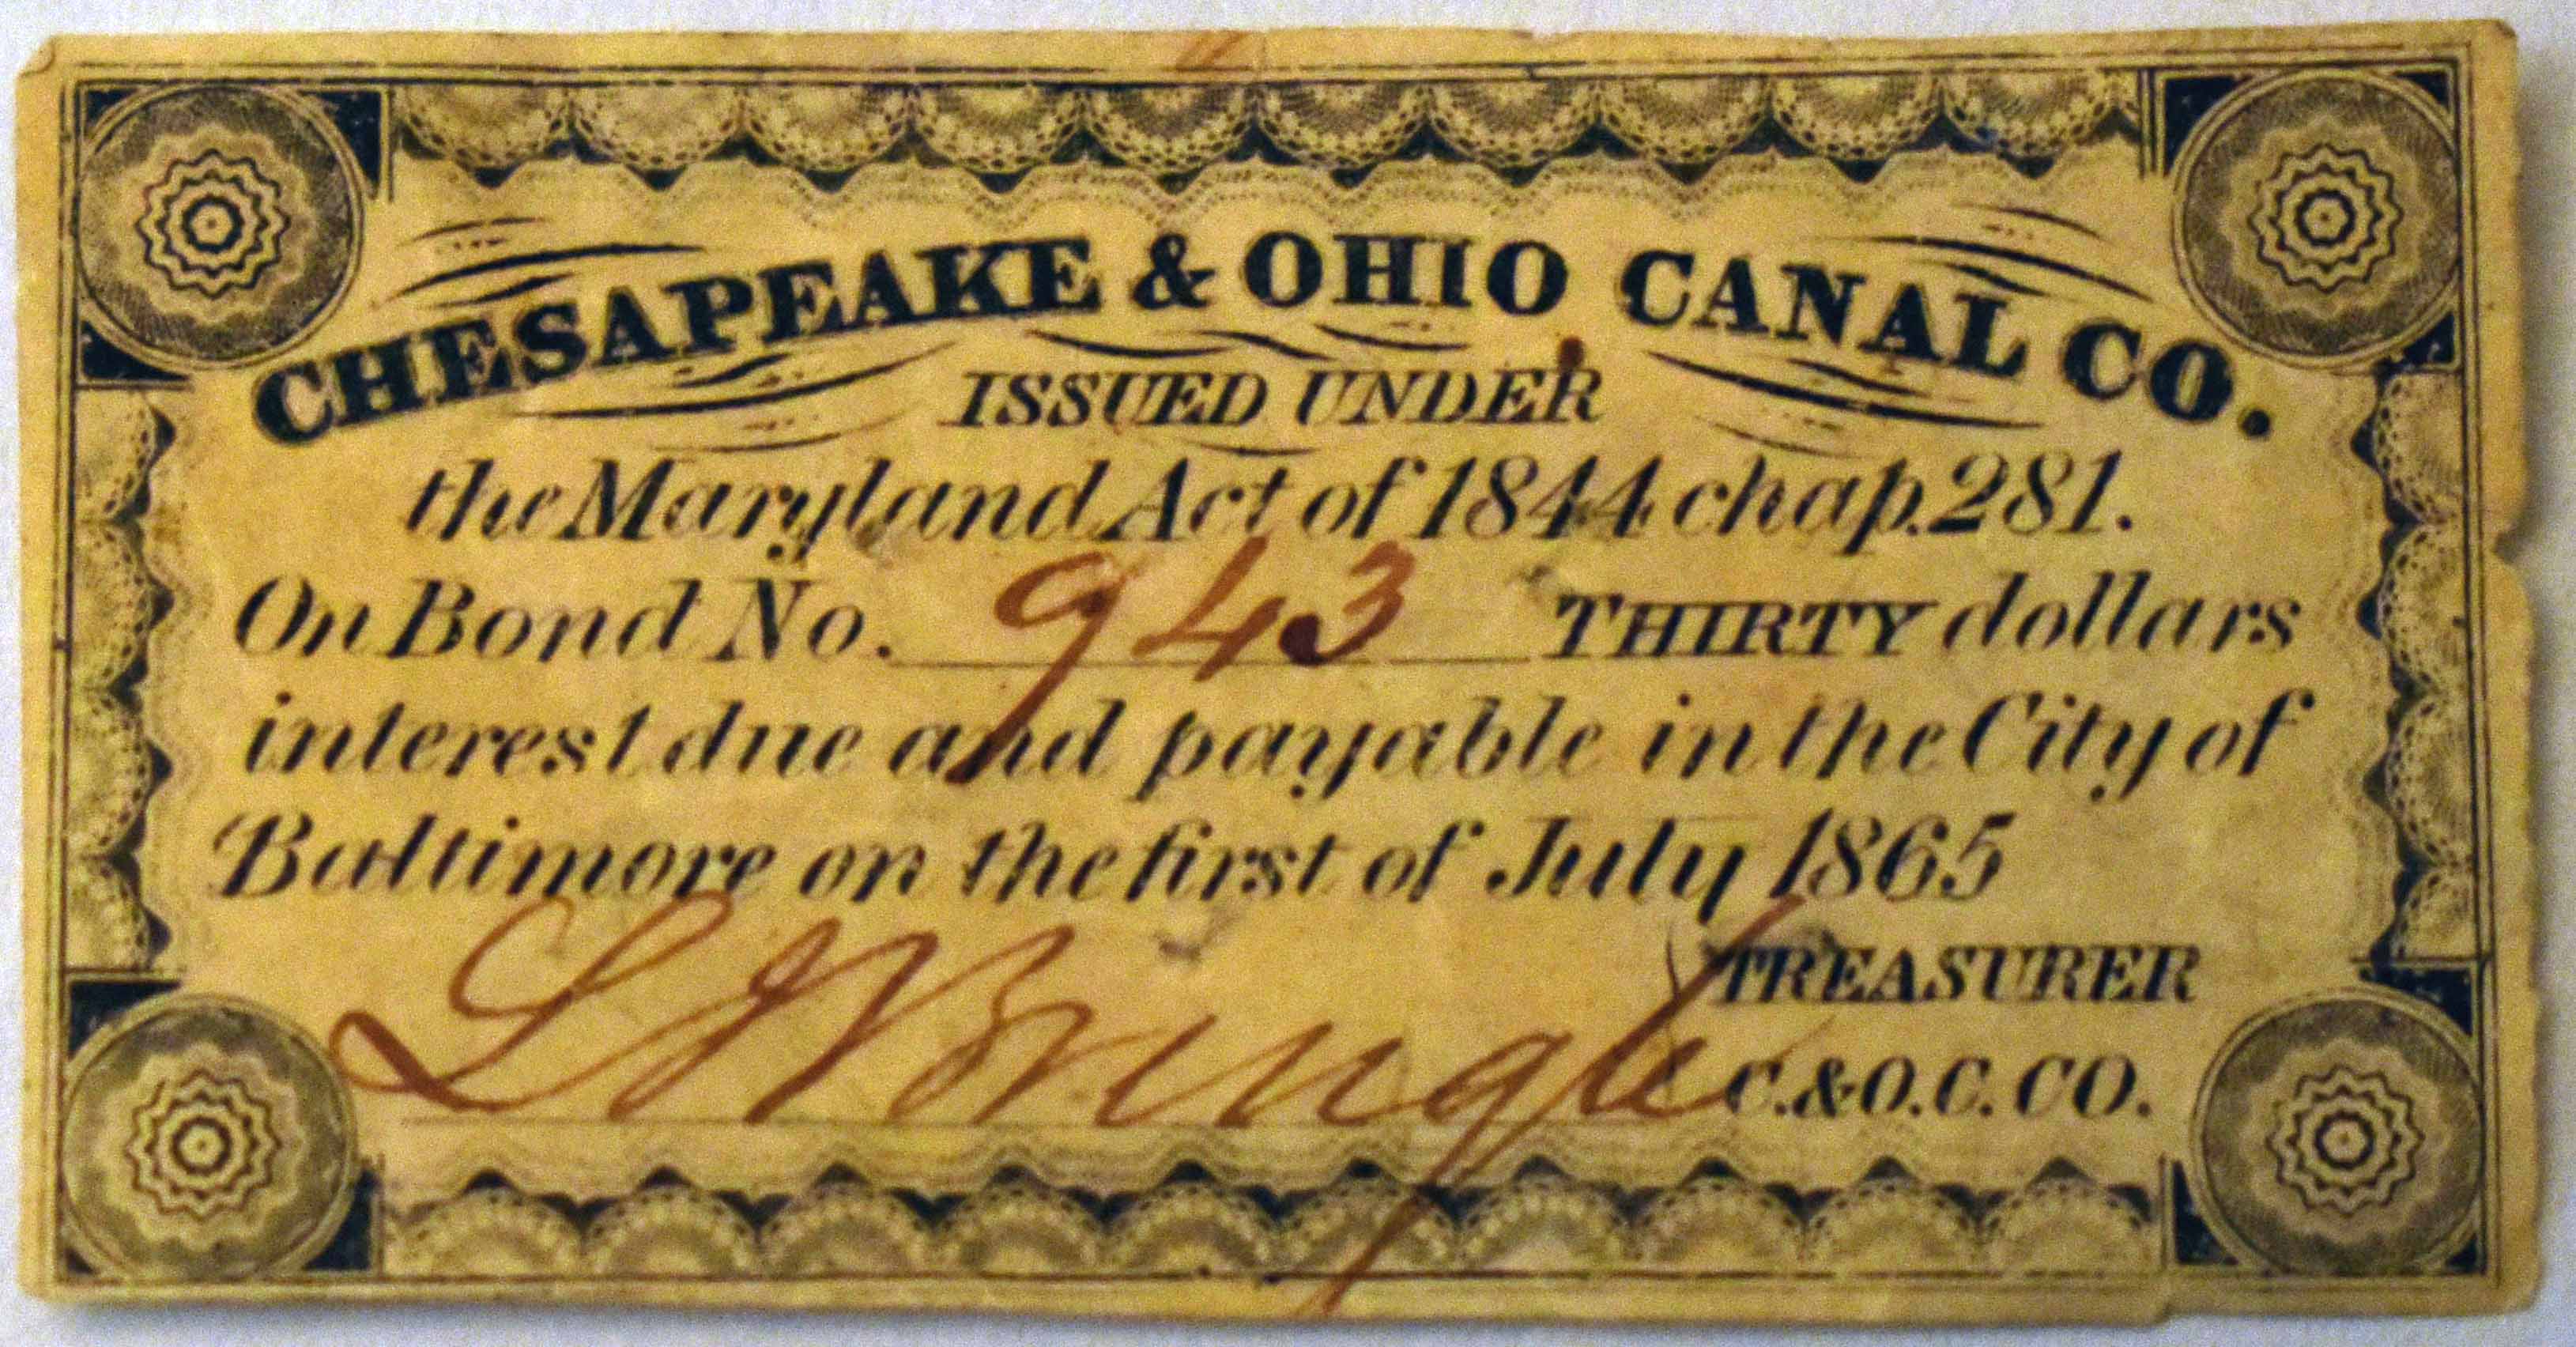 CHESAPEAKE & OHIO CANAL CO.
ISSUED UNDER
the Maryland Act of 1844 chap. 281.
On Bond No. 943 THIRTY dollars
interest due and payable in the City of
Baltimore on the first of July 1865
TREASURER
C. & O. C. CO.